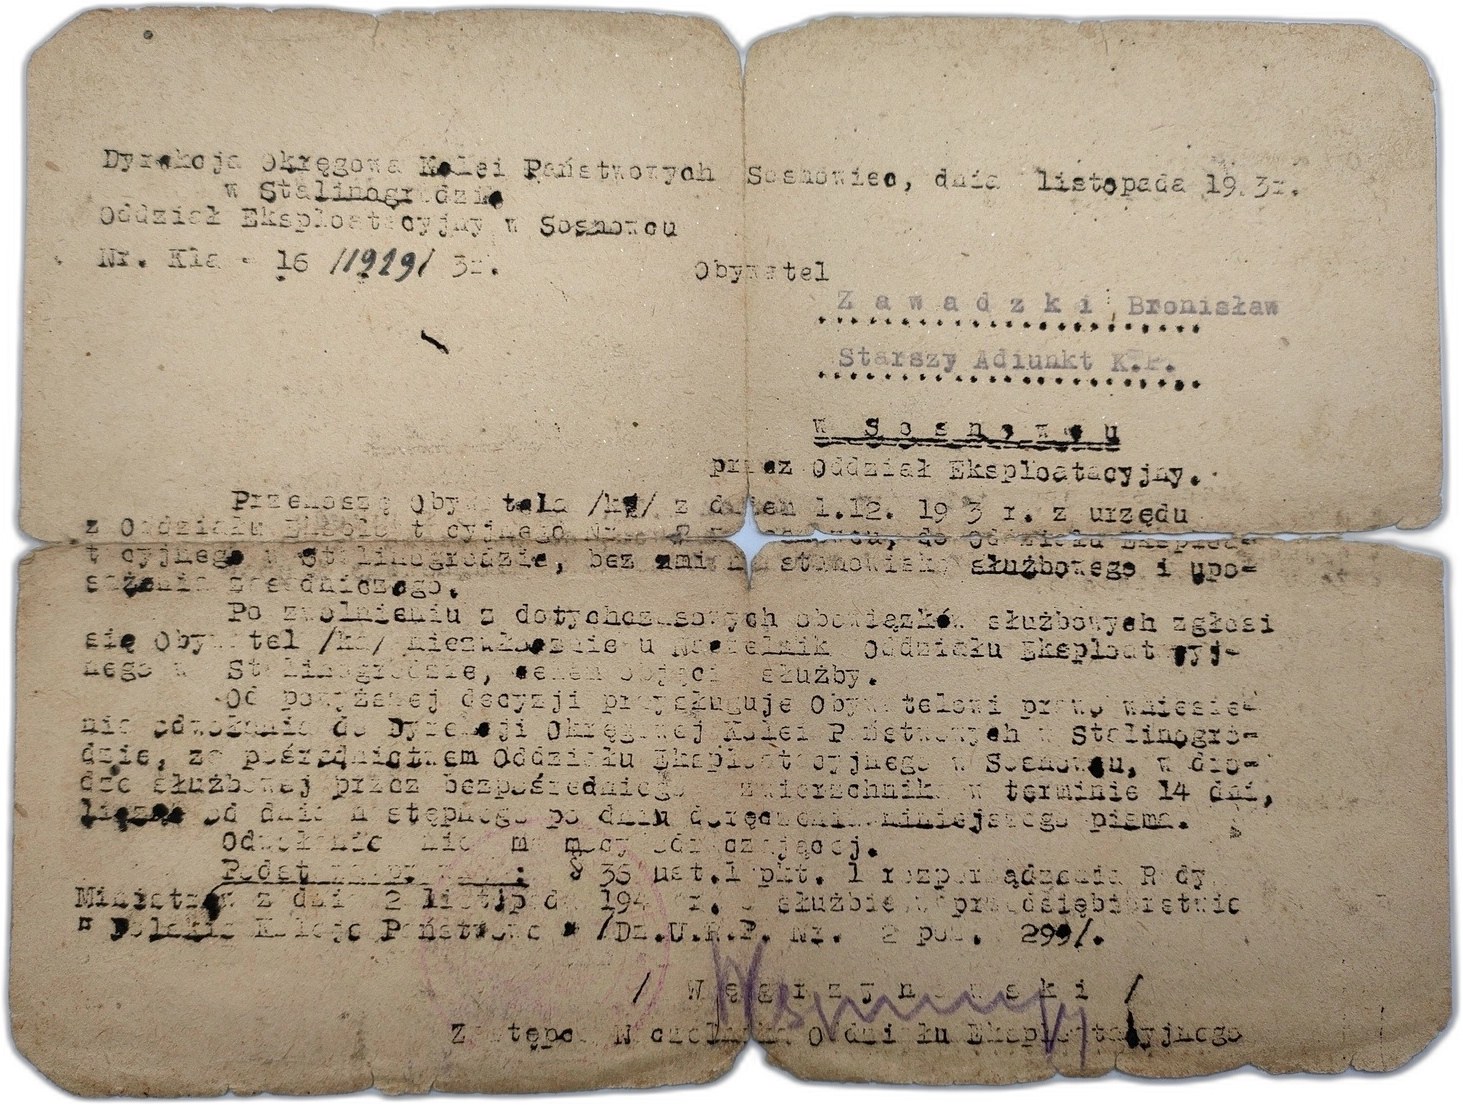 Dyrekcja Okręgowa Kolei Państwowych
w Stalinogrodzie
Oddział Eksploatacyjny w Sosnowcu
Nr. Kla - 16 /1929/ 3r.
Sosnowiec, dnia listopada 19 3r.
Obywatel
Zawadzki Bronisław
Starszy Adiunkt K.P.
w Sosnowcu
przez Oddział Eksploatacyjny.
Przenoszę Obywatela /kę/ z dniem 1.12. 19 3 r. z urzędu
z Oddziału Eksploatacyjnego Nr. w Sosnowcu, do Oddziału Eksploa-
tacyjnego w Stalinogrodzie, bez zmiany stanowiska służbowego i upo-
sażenia zasadniczego.
Po zwolnieniu z dotychczasowych obowiązków służbowych zgłosi
się Obywatel /ka/ niezwłocznie u Naczelnika Oddziału Eksploatacyj-
nego w Stalinogrodzie, celem objęcia służby.
Od powyższej decyzji przysługuje Obywatelowi prawo wniesie-
nia odwołania do Dyrekcji Okręgowej Kolei Państwowych w Stalinogro-
dzie, za pośrednictwem Oddziału Eksploatacyjnego w Sosnowcu, w dro-
dze służbowej przez bezpośredniego zwierzchnika w terminie 14 dni,
licząc od dnia następnego po dniu doręczenia niniejszego pisma.
Odwołanie nie ma mocy odraczającej.
§ 35 ust.1 pkt. 1 rozporządzenia Rady
Ministrów z dnia 2 listopada 194 r. o służbie w przedsiębiorstwie
" Polskie Koleje Państwowe " /Dz.U.R.P. Nr. 2 poz. 299/.
/ Węgrzynowski /
Zastępca Naczelnika Oddziału Eksploatacyjnego